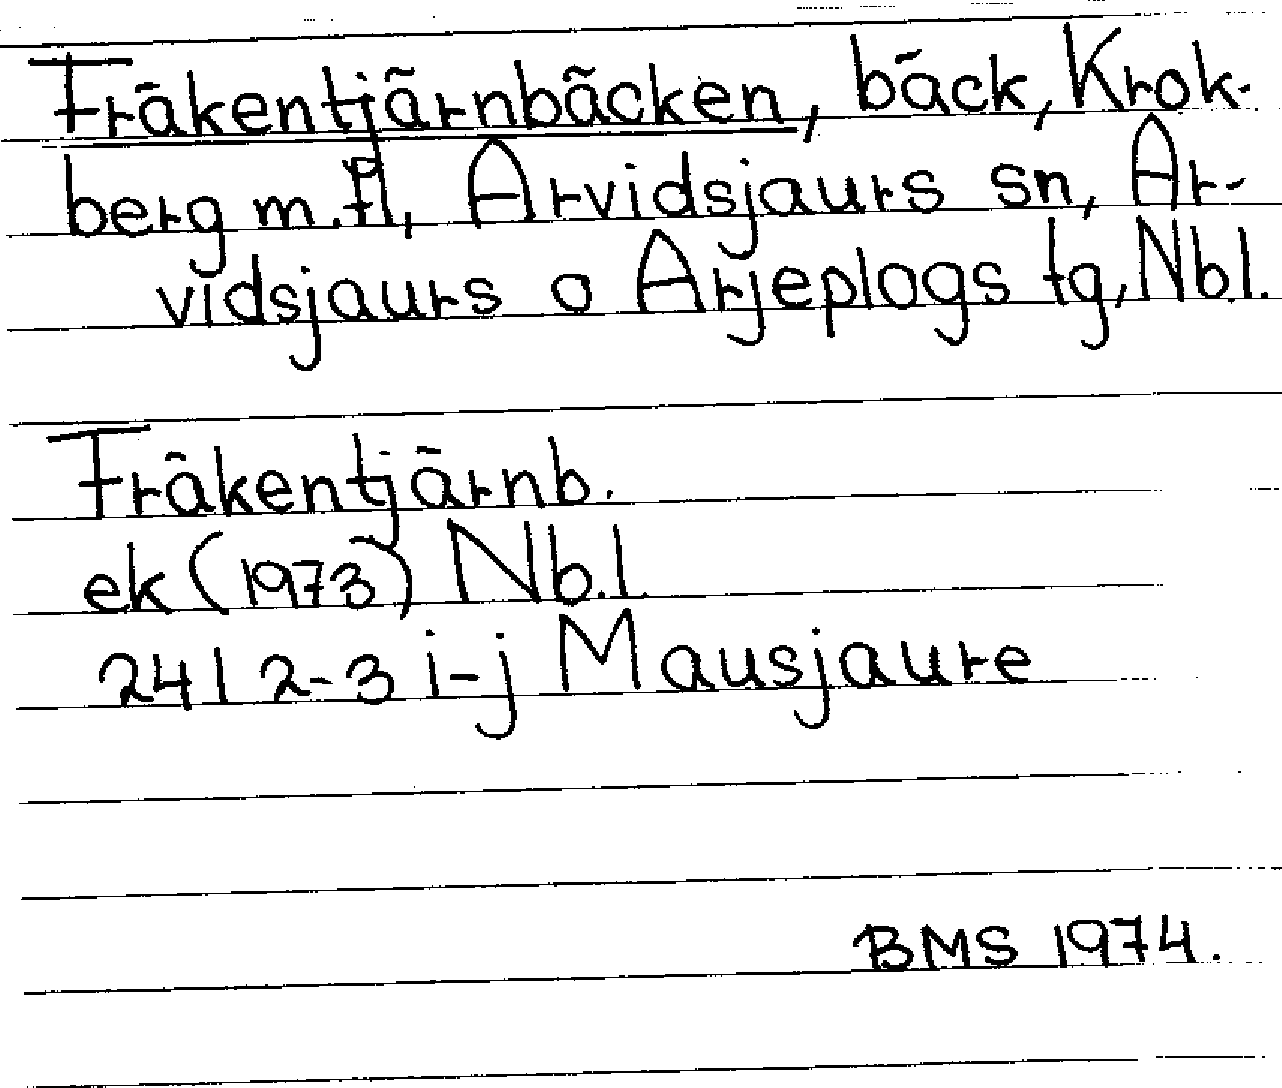 Fräkentjärnbäcken, bäck, Krok-
berg m.fl, Arvidsjaurs sn, Ar-
vidsjaurs o Arjeplogs tg, Nb.l.
Fräkentjärnb.
ek (1973) Nb.l.
24I 2-3 i-j Mausjaure
BMS 1974.